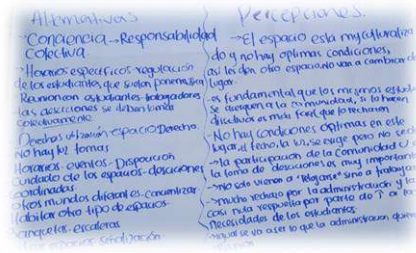 Alternativas
-Conciencia → Responsabilidad
Colectiva.
-Horarios especificos regulación
de los estudiantes que
Reunion con estudiantes trabajadores
las desciciones se deben tomar
colectivamente.
Derechos utilización espacio Derecho
no hay luz tomas
Horarios-eventos-Disposición
Cuidado de los espacios-desciciones
coordinadas
otros mundos diferentes-caracterizar
Habitar otro tipo de espacios
banquetas-escaleras
espacios señalización
Percepciones.
→El espacio esta muy culturaliza
do y no hay optimas condiciones,
asi les den otro espacio no van a cambiar de
lugar.
-es fundamental que los mismos estud
se acerquen a la comunidad, si lo hacen
directivos es mas facil que lo rechacen
-No hay condiciones optimas en este
lugar, el techo, la luz, se exige pero no se
→la participación de la comunidad U
la toma de desiciones es muy importan
-No solo vienen a "Relajarse" sino a trabajar
-mucho rechazo por la administración y la
casi nula respuesta por parte de
necesidades de los estudiantes
-igual se va a ser lo que la administración quie